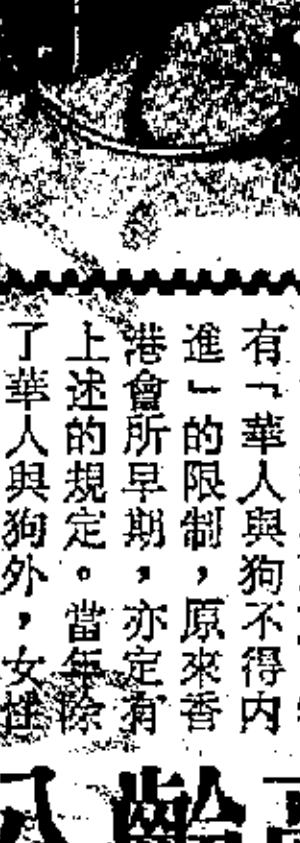 有「華人與狗不得內
進」的限制，原來香
港會所早期，亦定有
上述的規定。當年除
了華人與狗外，女性
齡